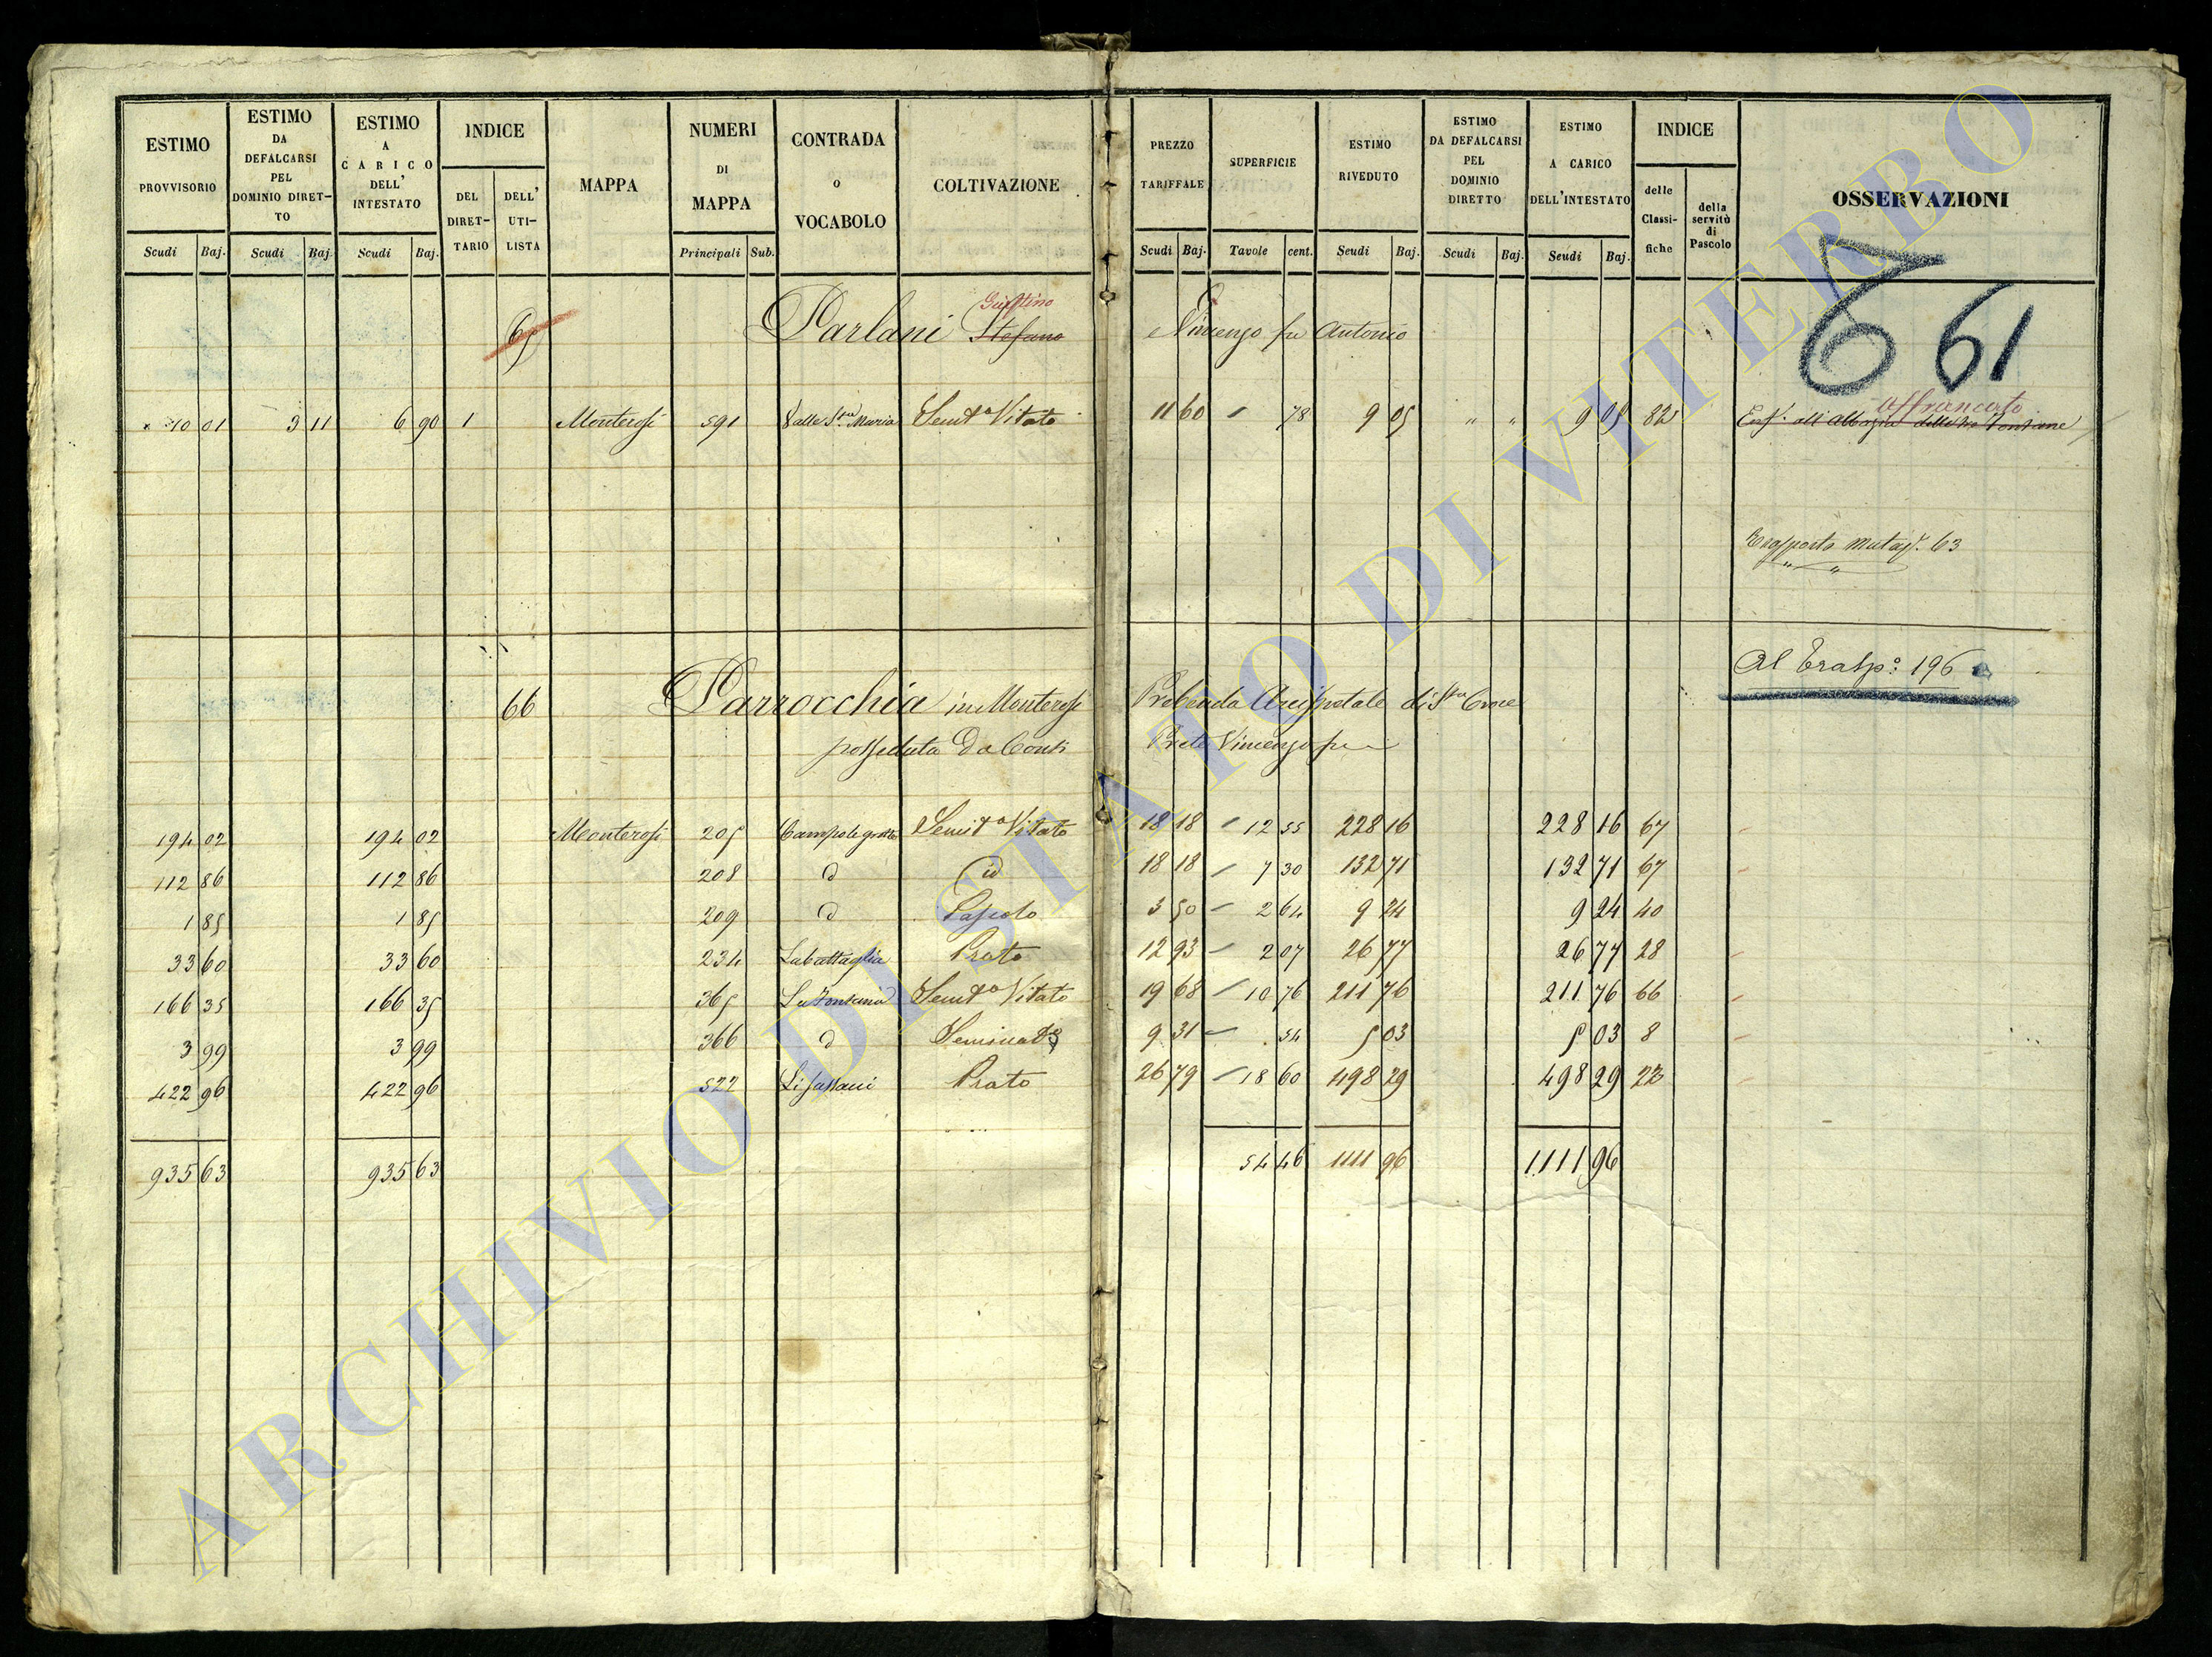 ESTIMO PROVVISORIO Scudi Baj.
ESTIMO DA DEFALCARSI PEL DOMINIO DIRET–TO Scudi Baj
ESTIMO A CARICO DELL' INTESTATO Scudi Baj.
INDICE DEL DIRET–TARIO DELL' UTI–LISTA
MAPPA
NUMERI DI MAPPA Principali Sub.
CONTRADA O VOCABOLO
COLTIVAZIONE
PREZZO TARIFFALE Scudi Baj.
SUPERFICIE Tavole cent.
ESTIMO RIVEDUTO Scudi Baj.
ESTIMO DA DEFALCARSI PEL DOMINIO DIRETTO Scudi Baj.
ESTIMO A CARICO DELL'INTESTATO Scudi Baj.
INDICE delle Classi-fiche della servitù di Pascolo
OSSERVAZIONI
6 61
Giustino
65 Parlani Stefano Vincenzo fu Antonio
Affrancato
10 01 3 11 6 90 1 Monterosi 591 Valle Sta Maria Semto Vitato 11 60 – 78 9 05 " " 9 05 82 Enf. all'Abbazia delle tre Fontane
Trasporto Mutaz. 63
" "
Al Trasp.o 196
66 Parrocchia in Monterosi Prebenda Arcipretale di Sta Croce
posseduta da Conti Prete Vincenzo fu –
194 02 194 02 Monterosi 205 Semito Vitato 18 18 – 12 55 228 16 228 16 67
112 86 112 86 208 d id 18 18 – 7 30 132 71 132 71 67
1 85 1 85 209 d Pascolo 3 50 – 2 64 9 24 9 24 40
33 60 33 60 234 La battaglia Prato 12 93 – 2 07 26 77 26 77 28
166 35 166 35 365 La Fontana Semto Vitato 19 68 – 10 76 211 76 211 76 66
3 99 3 99 366 d Seminato 9 31 – 54 5 03 5 03 8
422 96 422 96 522 Prato 26 79 – 18 60 498 29 498 29 22
935 63 935 63 54 46 1111 96 1111 96
ARCHIVIO DI STATO DI VITERBO